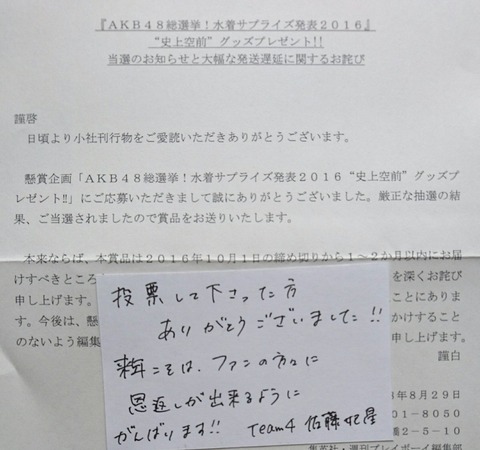 『AKB48総選挙！水着サプライズ発表2016』
“史上空前”グッズプレゼント!!
当選のお知らせと大幅な発送遅延に関するお詫び
謹啓
日頃より小社刊行物をご愛読いただきありがとうございます。
懸賞企画「AKB48総選挙！水着サプライズ発表2016“史上空前”グッズプ
レゼント!!」にご応募いただきまして誠にありがとうございました。厳正な抽選の結
果、ご当選されましたので賞品をお送りいたします。
本来ならば、本賞品は2016年10月1日の締め切りから1～2か月以内にお届
けすべきところ を深くお詫び
申し上げます。 ことにありま
す。今後は、懸 かけすること
のないよう編集 申し上げます。
謹白
年8月29日
01-8050
橋2-5-10
集英社・週刊プレイボーイ編集部
投票して下さった方
ありがとうございました!!
来年こそは、ファンの方々に
恩返しが出来るように
がんばります!! Team4 佐藤妃星